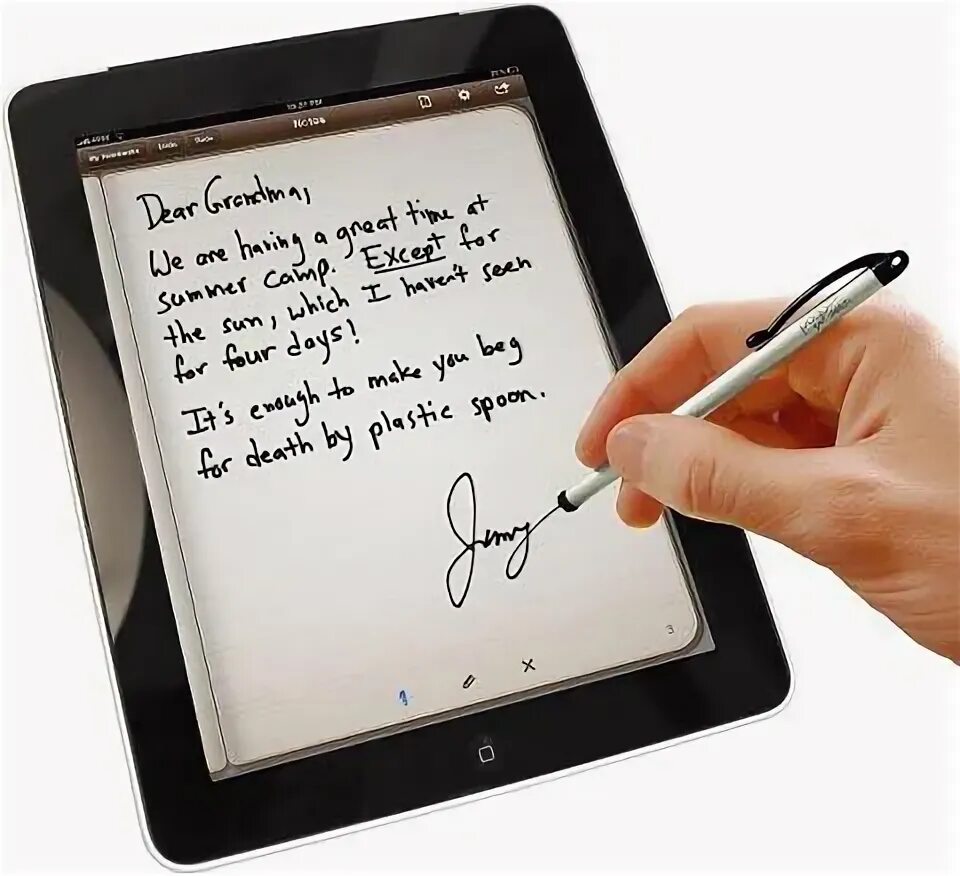 Notes
Dear Grandma,
We are having a great time at
summer camp. Except for
the sun, which I haven't seen
for four days!
It's enough to make you beg
for death by plastic spoon.
Jenny
3